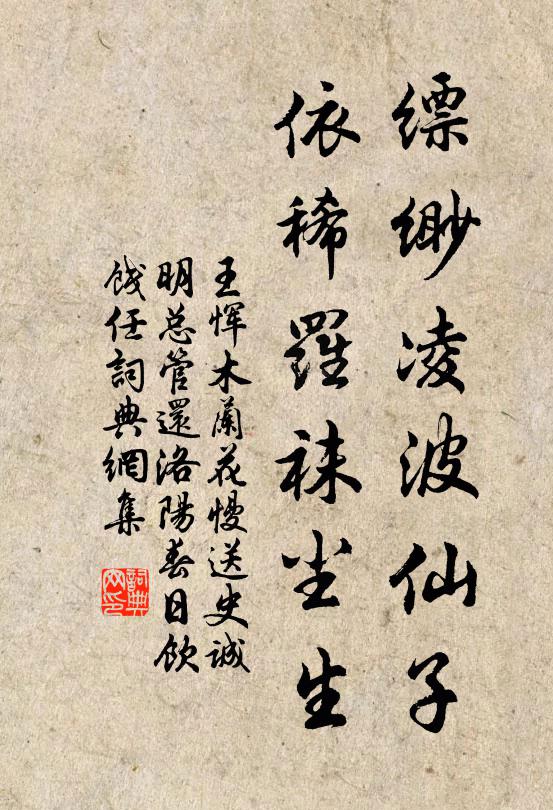 缥缈凌波仙子
依稀羅袜尘生
王恽木蘭花慢送史诚
明总管還洛陽春日飲
饯任詞典網集
詞典
网印